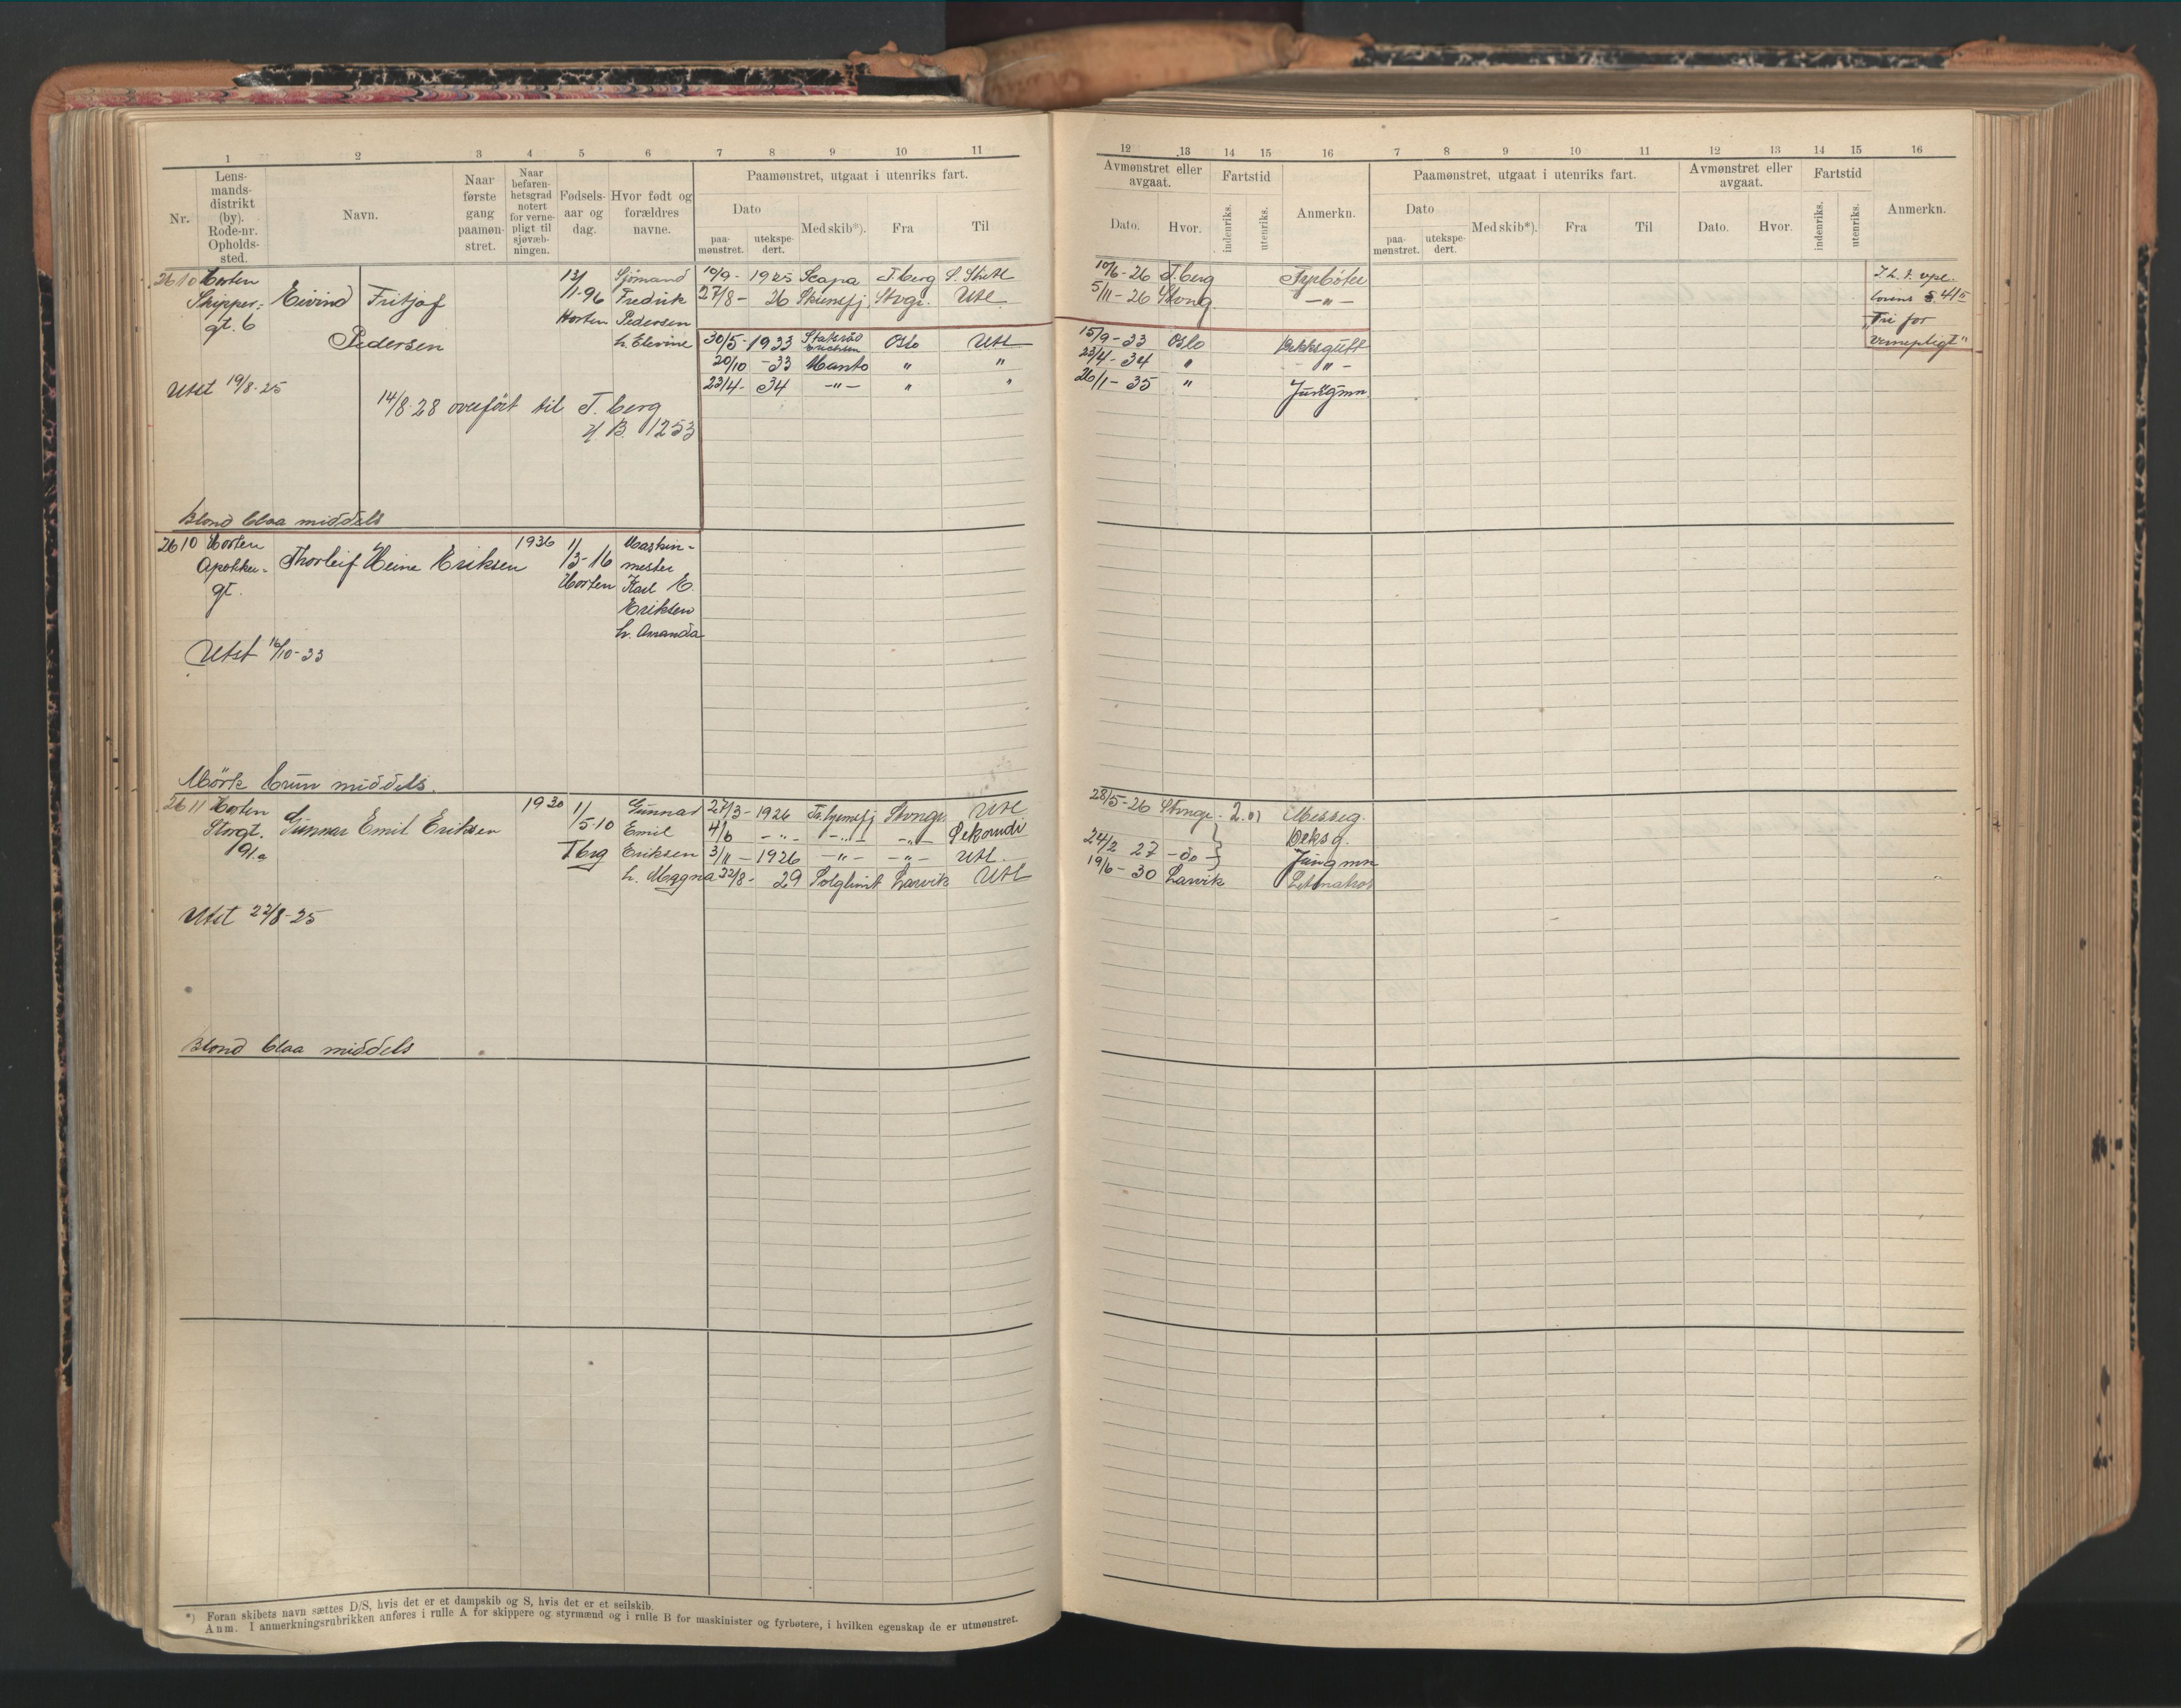 1 2 3 4 5 6 7 8 9 10 11
Nr.
Lens-
mands-
distrikt
(by).
Rode-nr.
Opholds-
sted.
Navn.
Naar
første
gang
paamøn-
stret.
Naar
befaren-
hetsgrad
notert
for verne-
pligt til
sjøvæb-
ningen.
Fødsels-
aar og
dag.
Hvor født og
forældres
navne.
Paamønstret, utgaat i utenriks fart.
Dato
paa-
mønstret.
utekspe-
dert.
Med skib*).
Fra
Til
2610 Horten
Skipper-
gt. 6
Eivind Fritjof
Pedersen
12/
11-96
Horten
Sjömand
Fredrik
Pedersen
h. Elevine
19/9- 1925 Scapa T.berg S. Shetl
27/8- 26 Stvgr. Utl
30/5- 1933 Statsråd
Erichsen Oslo Utl
20/10 -33 Manto " "
23/4- 34 -"- " "
Utst 19/8-25
14/8-28 overfört til T.berg
B. 1253
Blond blaa middels
2610 Horten
Apotheker-
gt.
Thorleif Heine Eriksen
1936
1/
3-16
Horten
Maskin-
mester
Karl E.
Eriksen
h. Amanda
Utst 16/10-33
Mörk brun middels.
2611 Horten
Storgt.
19 I.a
Gunnar Emil Eriksen
1930
1/
5-10
T.brg
Gunnar
Emil
Eriksen
h. Magna
27/3- 1926 Stvngr. Utl
4/6 -"- -"- -"-
3/11 - 1926 -"- -"- Utl.
22/8- 29 Solglimt Larvik Utl
Utst 22/8-25
Blond blaa middels
*) Foran skibets navn sættes D/S, hvis det er et dampskib og S, hvis det er et seilskib.
Anm. I anmerkningsrubrikken anføres i rulle A for skippere og styrmænd og i rulle B for maskinister og fyrbøtere, i hvilken egenskap de er utmønstret.
12 13 14 15 16 7 8 9 10 11 12 13 14 15 16
Avmønstret eller
avgaat.
Dato.
Hvor.
Fartstid
indenriks.
utenriks.
Anmerkn.
Paamønstret, utgaat i utenriks fart.
Dato
paa-
mønstret.
utekspe-
dert.
Med skib*).
Fra
Til
Avmønstret eller
avgaat.
Dato.
Hvor.
Fartstid
indenriks.
utenriks.
Anmerkn.
10/6-26 T.berg Fyrböter
5/11-26 Stvng -"-
15/9-33 Oslo Dekksgutt
23/4-34 " -"-
26/1-35 " Jungmn
§ 41 5
"Fri for
vernepligt"
28/5-26 Stvngr. Messeg.
Deksg.
24/2 27 -do- Jungmn
19/6-30 Larvik Letmatros